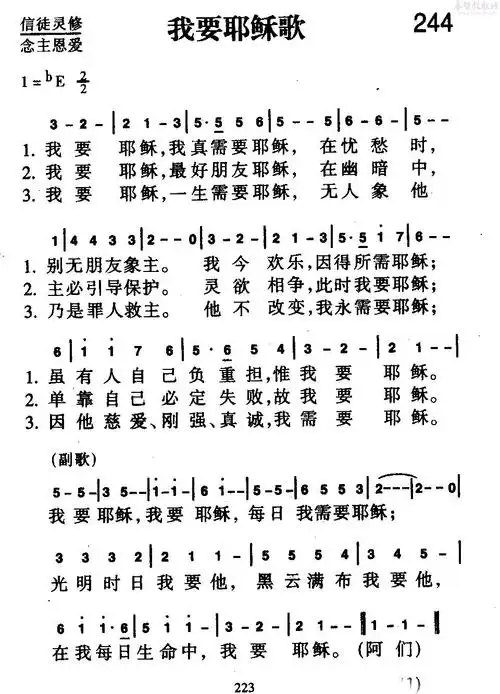 信徒灵修
念主恩爱
我要耶稣歌
244
1=ᵇE 2/2
3-2-|21-3|5·5 56|5--|5-6-|6-5-|5--
1. 我要 耶稣,我真需要耶稣, 在忧愁时,
2. 我要 耶稣,最好朋友耶稣, 在幽暗中,
3. 我要 耶稣,一生需要耶稣, 无人象他
1|4433|2--0|3-2-|21-3|5·5 i7|6--
1. 别无朋友象主。 我今 欢乐,因得所需耶稣;
2. 主必引导保护。 灵欲 相争,此时我要耶稣;
3. 乃是罪人救主。 他不 改变,我永需要耶稣;
6|ii76|5·654|3-2-|21--
1. 虽有人自己负重担,惟我要 耶稣。
2. 单靠自己必定失败,故我要 耶稣。
3. 因他慈爱、刚强、真诚,我需要 耶稣。
(副歌)
5-5-|35--|i-i-|6i--|5-5-|6553|2---|2--0|
我要耶稣,我要 耶稣, 每日 我需要耶稣;
3332|21 2-|5554|34 5-|
光明时日我要他, 黑云满布我要他,
6ii·6|5ii-|3-2-|21--‖i-i-‖
在我每日生命中, 我要 耶稣。(阿们)
223